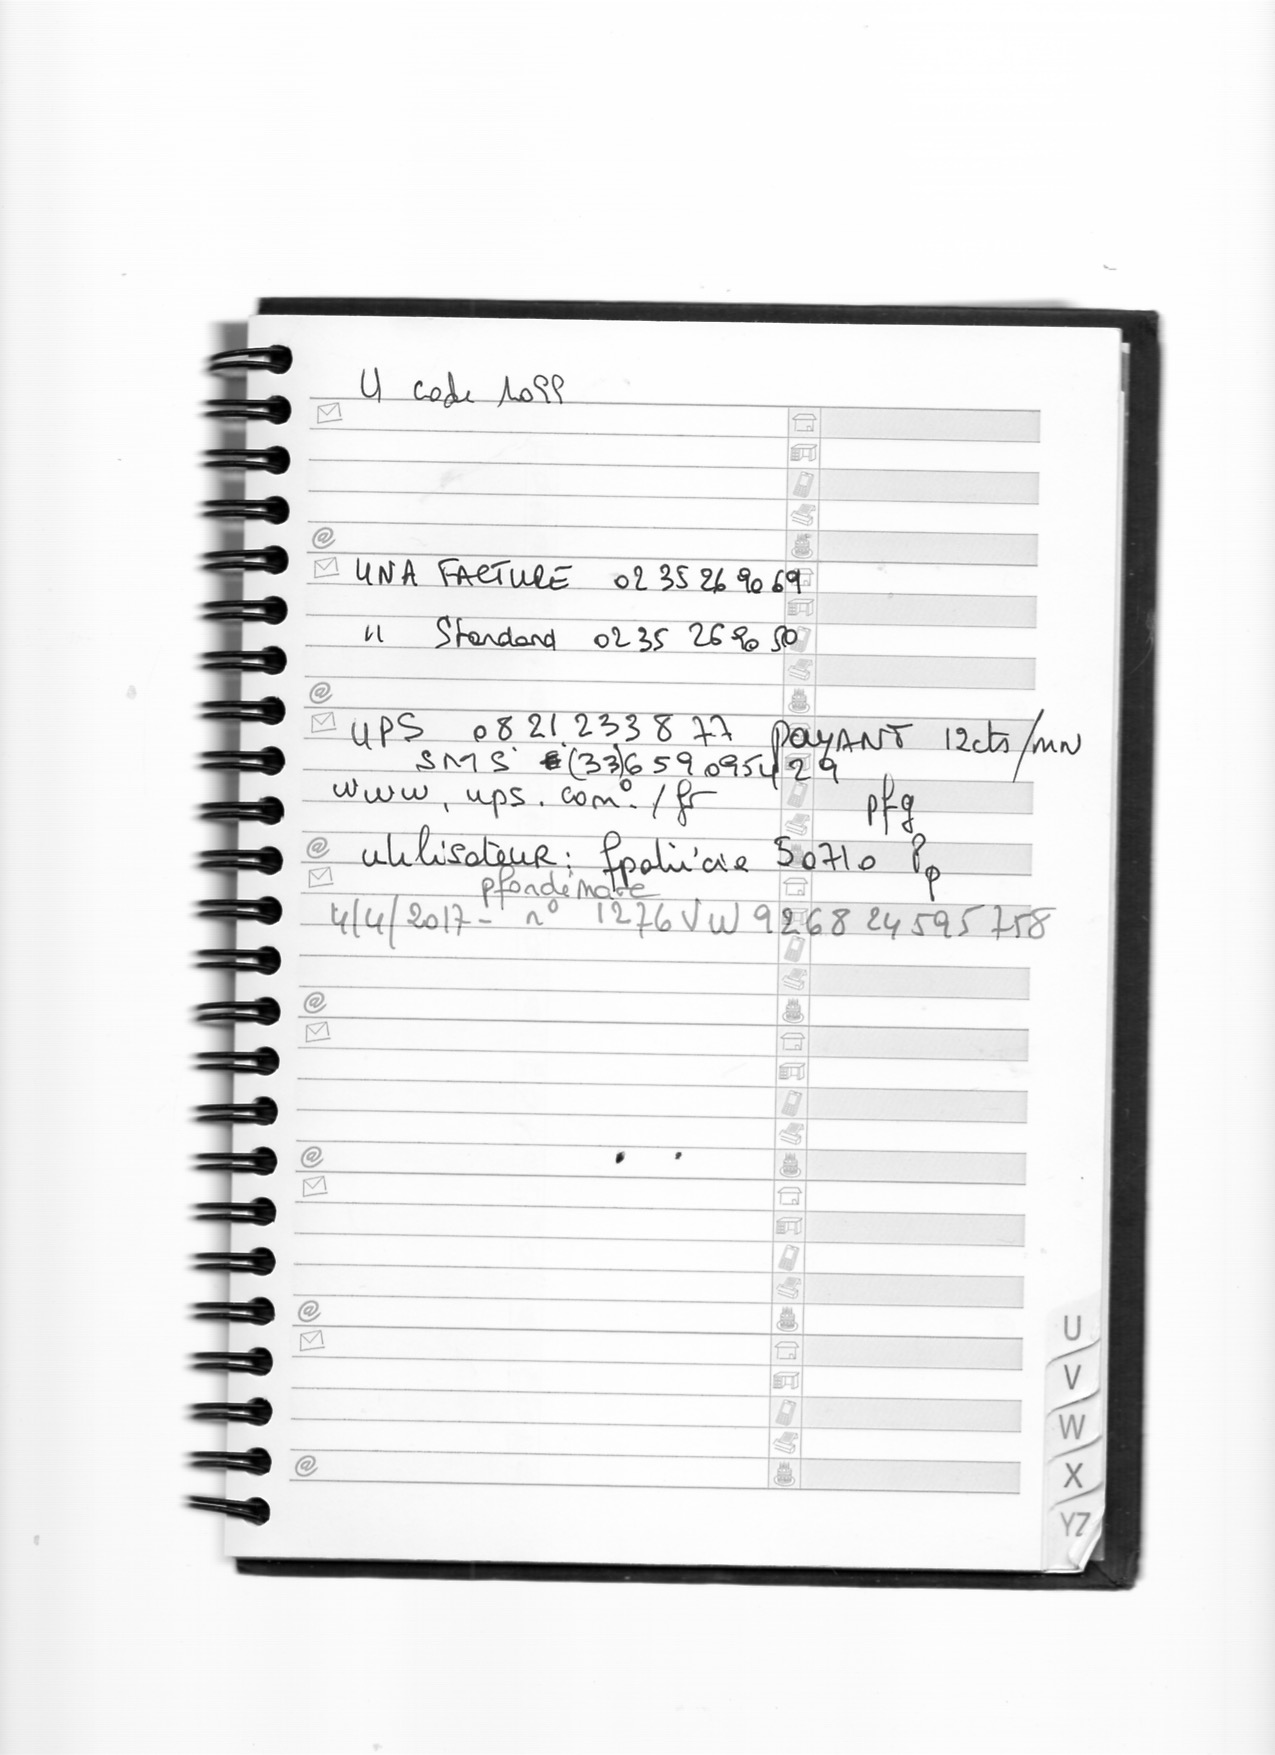 U code 1099
UNA FACTURE 02 35 26 90 69
" Standard 02 35 26 90 50
UPS 0821.233877 PAYANT 12cts/MN
SMS (33)6 590954 29
www.ups.com /fr
pfg
utilisateur: 50710
4/4/2017- n° 1276VW9268 24595758
U
V
W
X
YZ